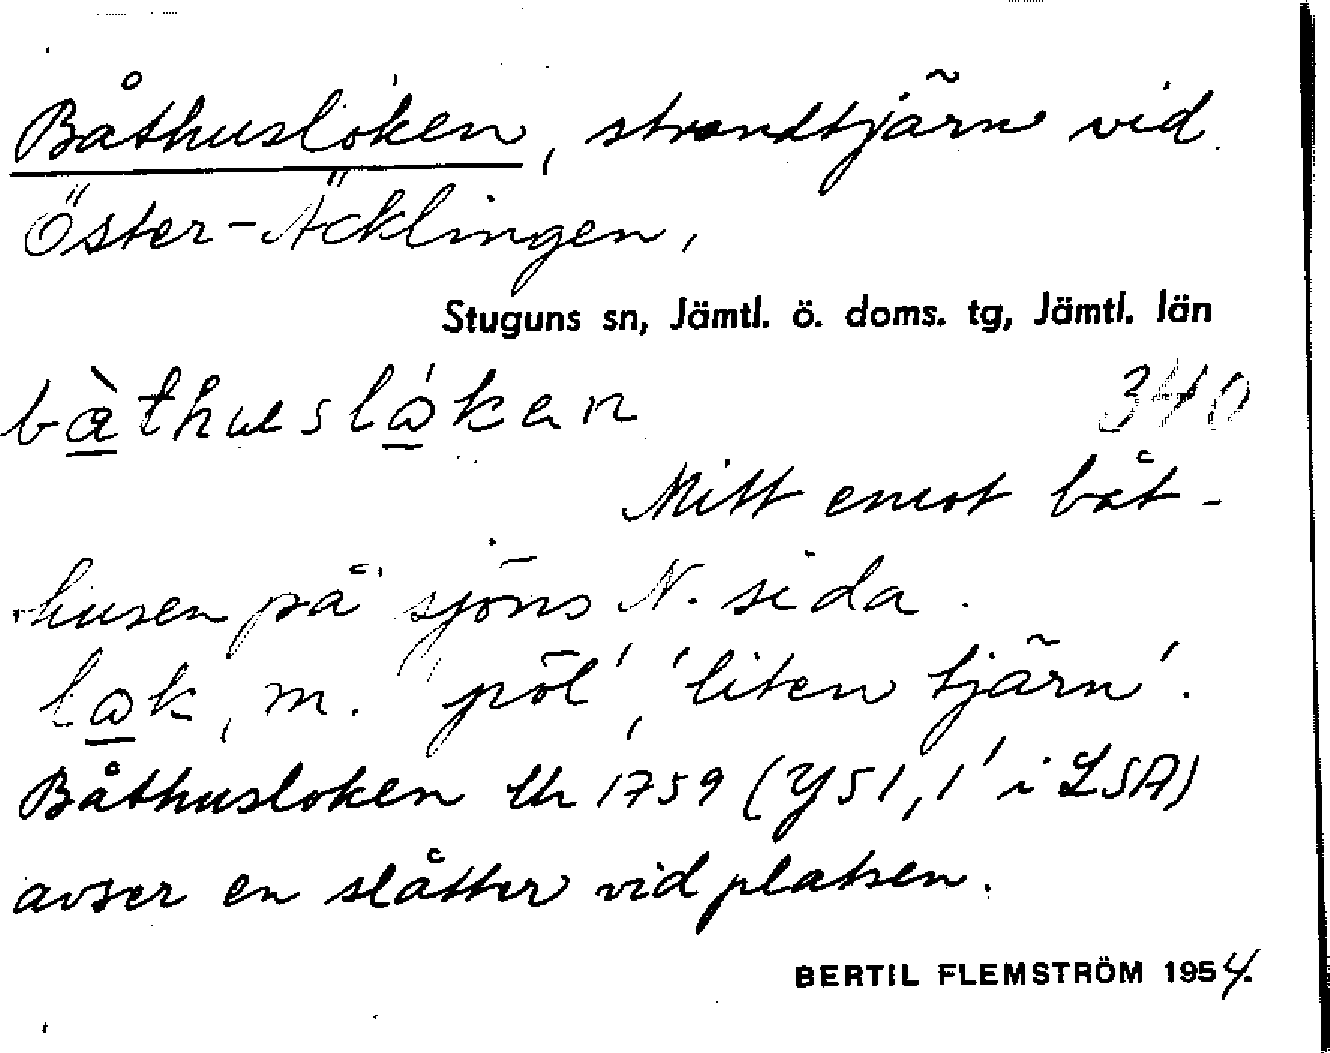 Båthusloken, strandtjärn vid
Öster-Äcklingen,
Stuguns sn, Jämtl. ö. doms. tg, Jämtl. län
bàthusló̲kan
340
Mitt emot båt-
husen på sjöns N. sida.
lo̲k, m. 'pöl', 'liten tjärn'.
Båthusloken Lh 1759 (Y51, 1' i LSA)
avser en slåtter vid platsen.
BERTIL FLEMSTRÖM 1954.